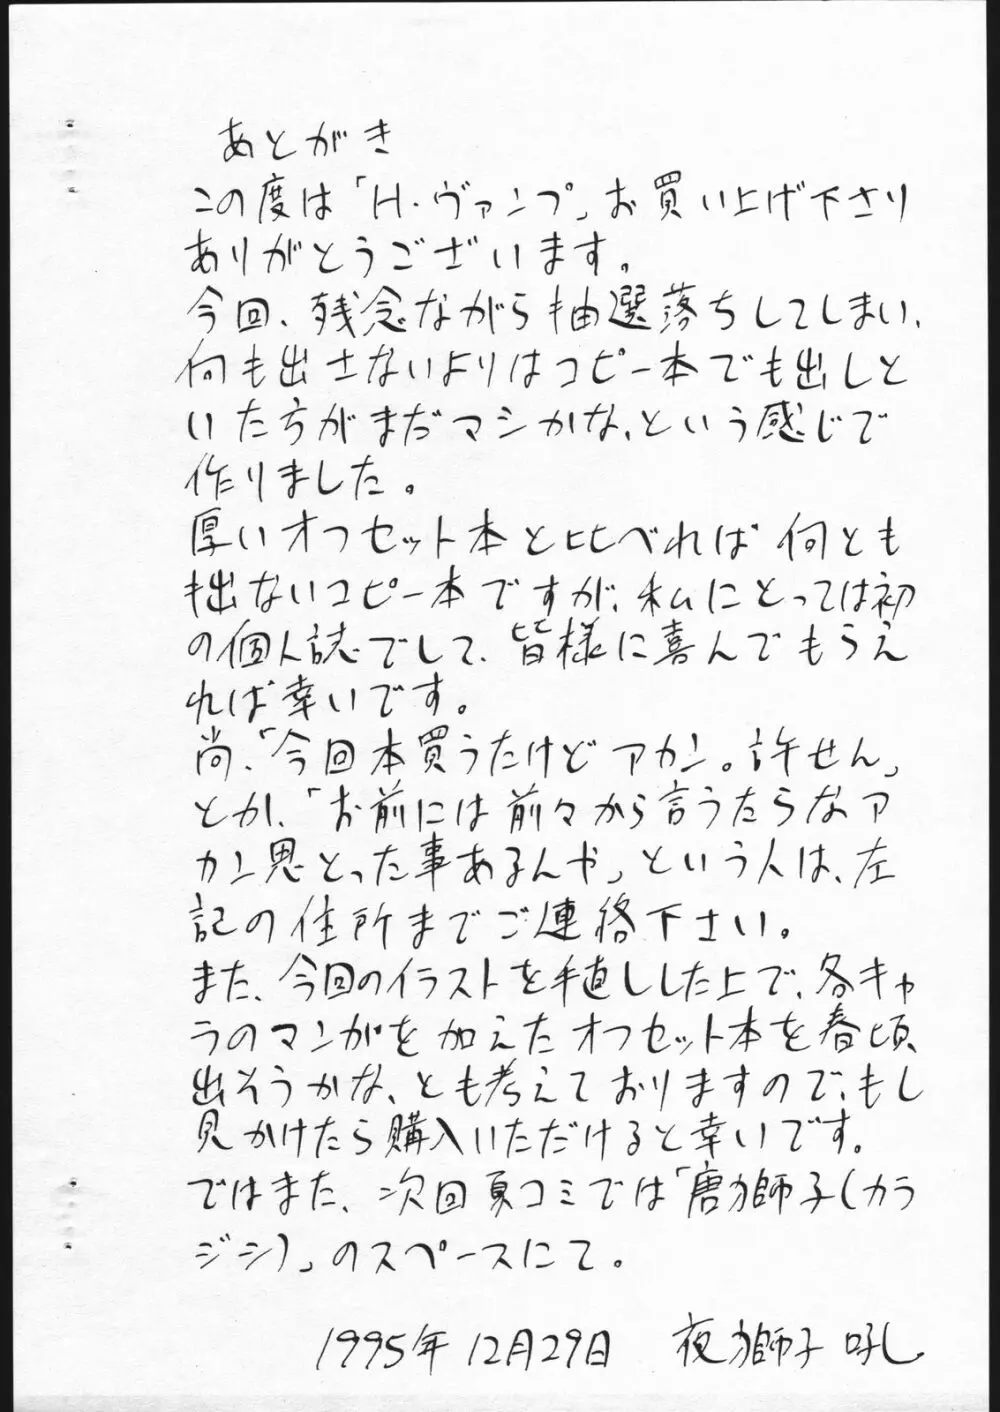 あとがき
この度は「H・ヴァンプ」お買い上げ下さり
ありがとうございます。
今回、残念ながら抽選落ちしてしまい、
何も出さないよりはコピー本でも出しと
いた方がまだマシかな、という感じで
作りました。
厚いオフセット本と比べれば何とも
拙ないコピー本ですが、私にとっては初
の個人誌でして、皆様に喜んでもらえ
れば幸いです。
尚、「今回本買うたけどアカン。許せん」
とか、「お前には前々から言うたらなア
カン思とった事あるんや」という人は、左
記の住所までご連絡下さい。
また、今回のイラストを手直しした上で、各キャ
ラのマンガを加えたオフセット本を春頃
出そうかな、とも考えておりますので、もし
見かけたら購入いただけると幸いです。
ではまた、次回夏コミでは「唐獅子(カラ
ジシ)」のスペースにて。
1995年12月29日 夜獅子 吼し